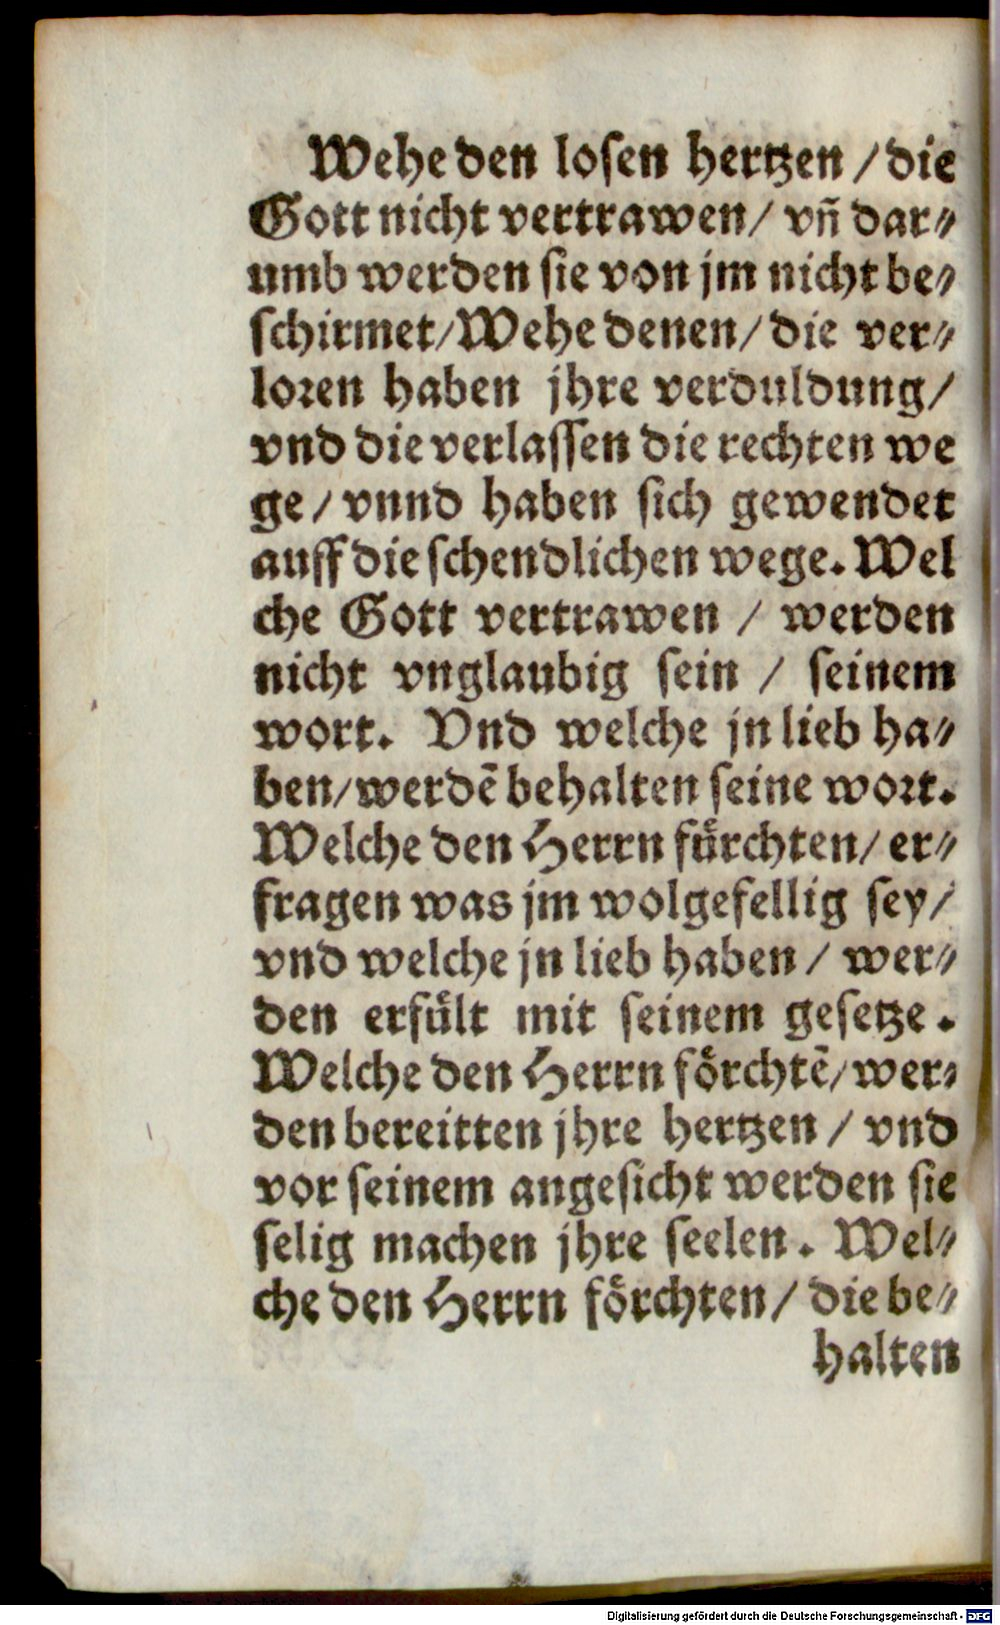 Wehe den losen hertzen / die
Gott nicht vertrawen / vñ dar⸗
umb werden sie von jm nicht be⸗
schirmet / Wehe denen / die ver⸗
loren haben jhre verduldung /
vnd die verlassen die rechten we
ge / vnnd haben sich gewendet
auff die schendlichen wege. Wel
che Gott vertrawen / werden
nicht vnglaubig sein / seinem
wort. Vnd welche jn lieb ha⸗
ben / werdẽ behalten seine wort.
Welche den Herrn fuͤrchten / er⸗
fragen was jm wolgefellig sey /
vnd welche jn lieb haben / wer⸗
den erfuͤlt mit seinem gesetze.
Welche den Herrn foͤrchtẽ / wer⸗
den bereitten jhre hertzen / vnd
vor seinem angesicht werden sie
selig machen jhre seelen. Wel⸗
che den Herrn foͤrchten / die be⸗
halten
Digitalisierung gefördert durch die Deutsche Forschungsgemeinschaft - DFG